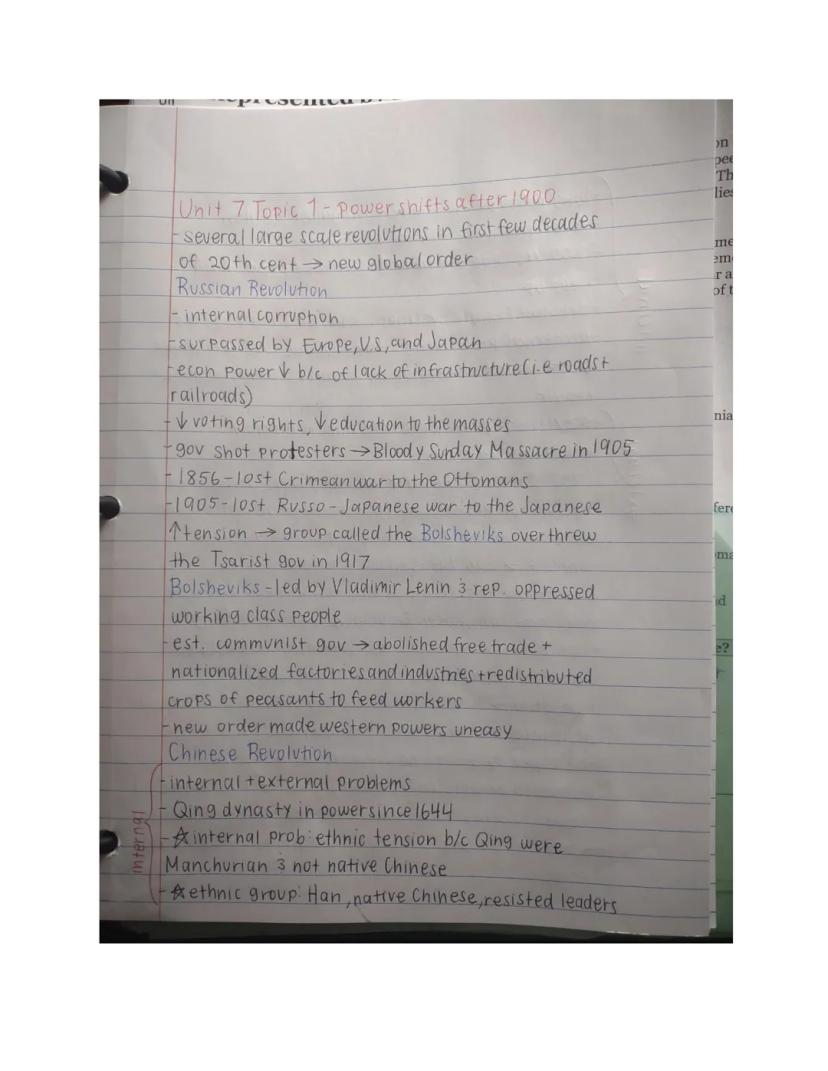 Unit 7 Topic 1 - Power shifts after 1900
- several large scale revolutions in first few decades
of 20th cent → new global order
Russian Revolution
- internal corruption
- surpassed by Europe, U.S, and Japan
- econ power ↓ b/c of lack of infrastructure (i.e roads +
railroads)
- ↓ voting rights, ↓ education to the masses
- gov shot protesters → Bloody Sunday Massacre in 1905
- 1856 - lost Crimean war to the Ottomans
- 1905 - lost Russo - Japanese war to the Japanese
↑ tension → group called the Bolsheviks overthrew
the Tsarist gov in 1917
Bolsheviks - led by Vladimir Lenin & rep. oppressed
working class people
- est. communist gov → abolished free trade +
nationalized factories and industries + redistributed
crops of peasants to feed workers
- new order made western powers uneasy
Chinese Revolution
- internal + external problems
- Qing dynasty in power since 1644
- ☆ internal prob: ethnic tension b/c Qing were
Manchurian & not native Chinese
- ☆ ethnic group: Han, native Chinese, resisted leaders
internal